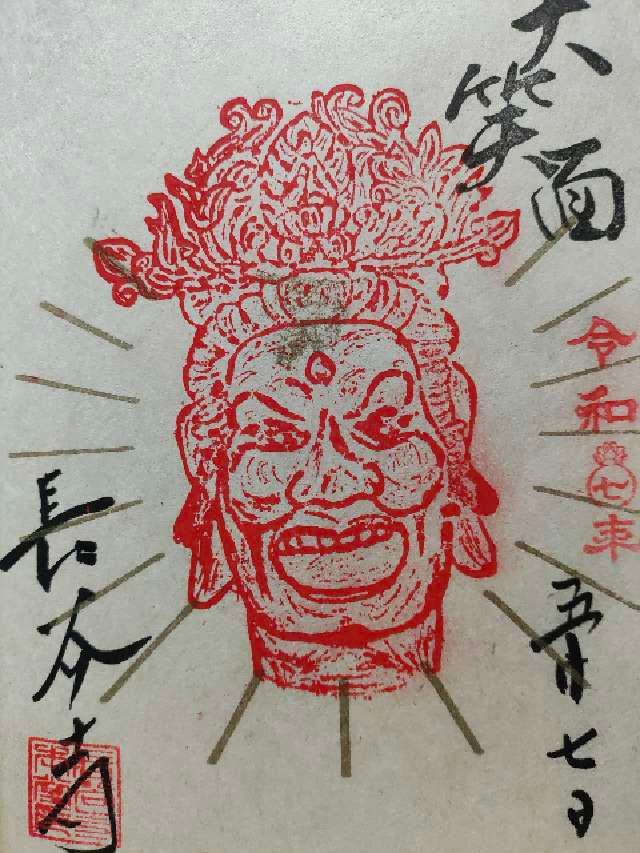 大笑面
令和七年
五月七日
長谷寺